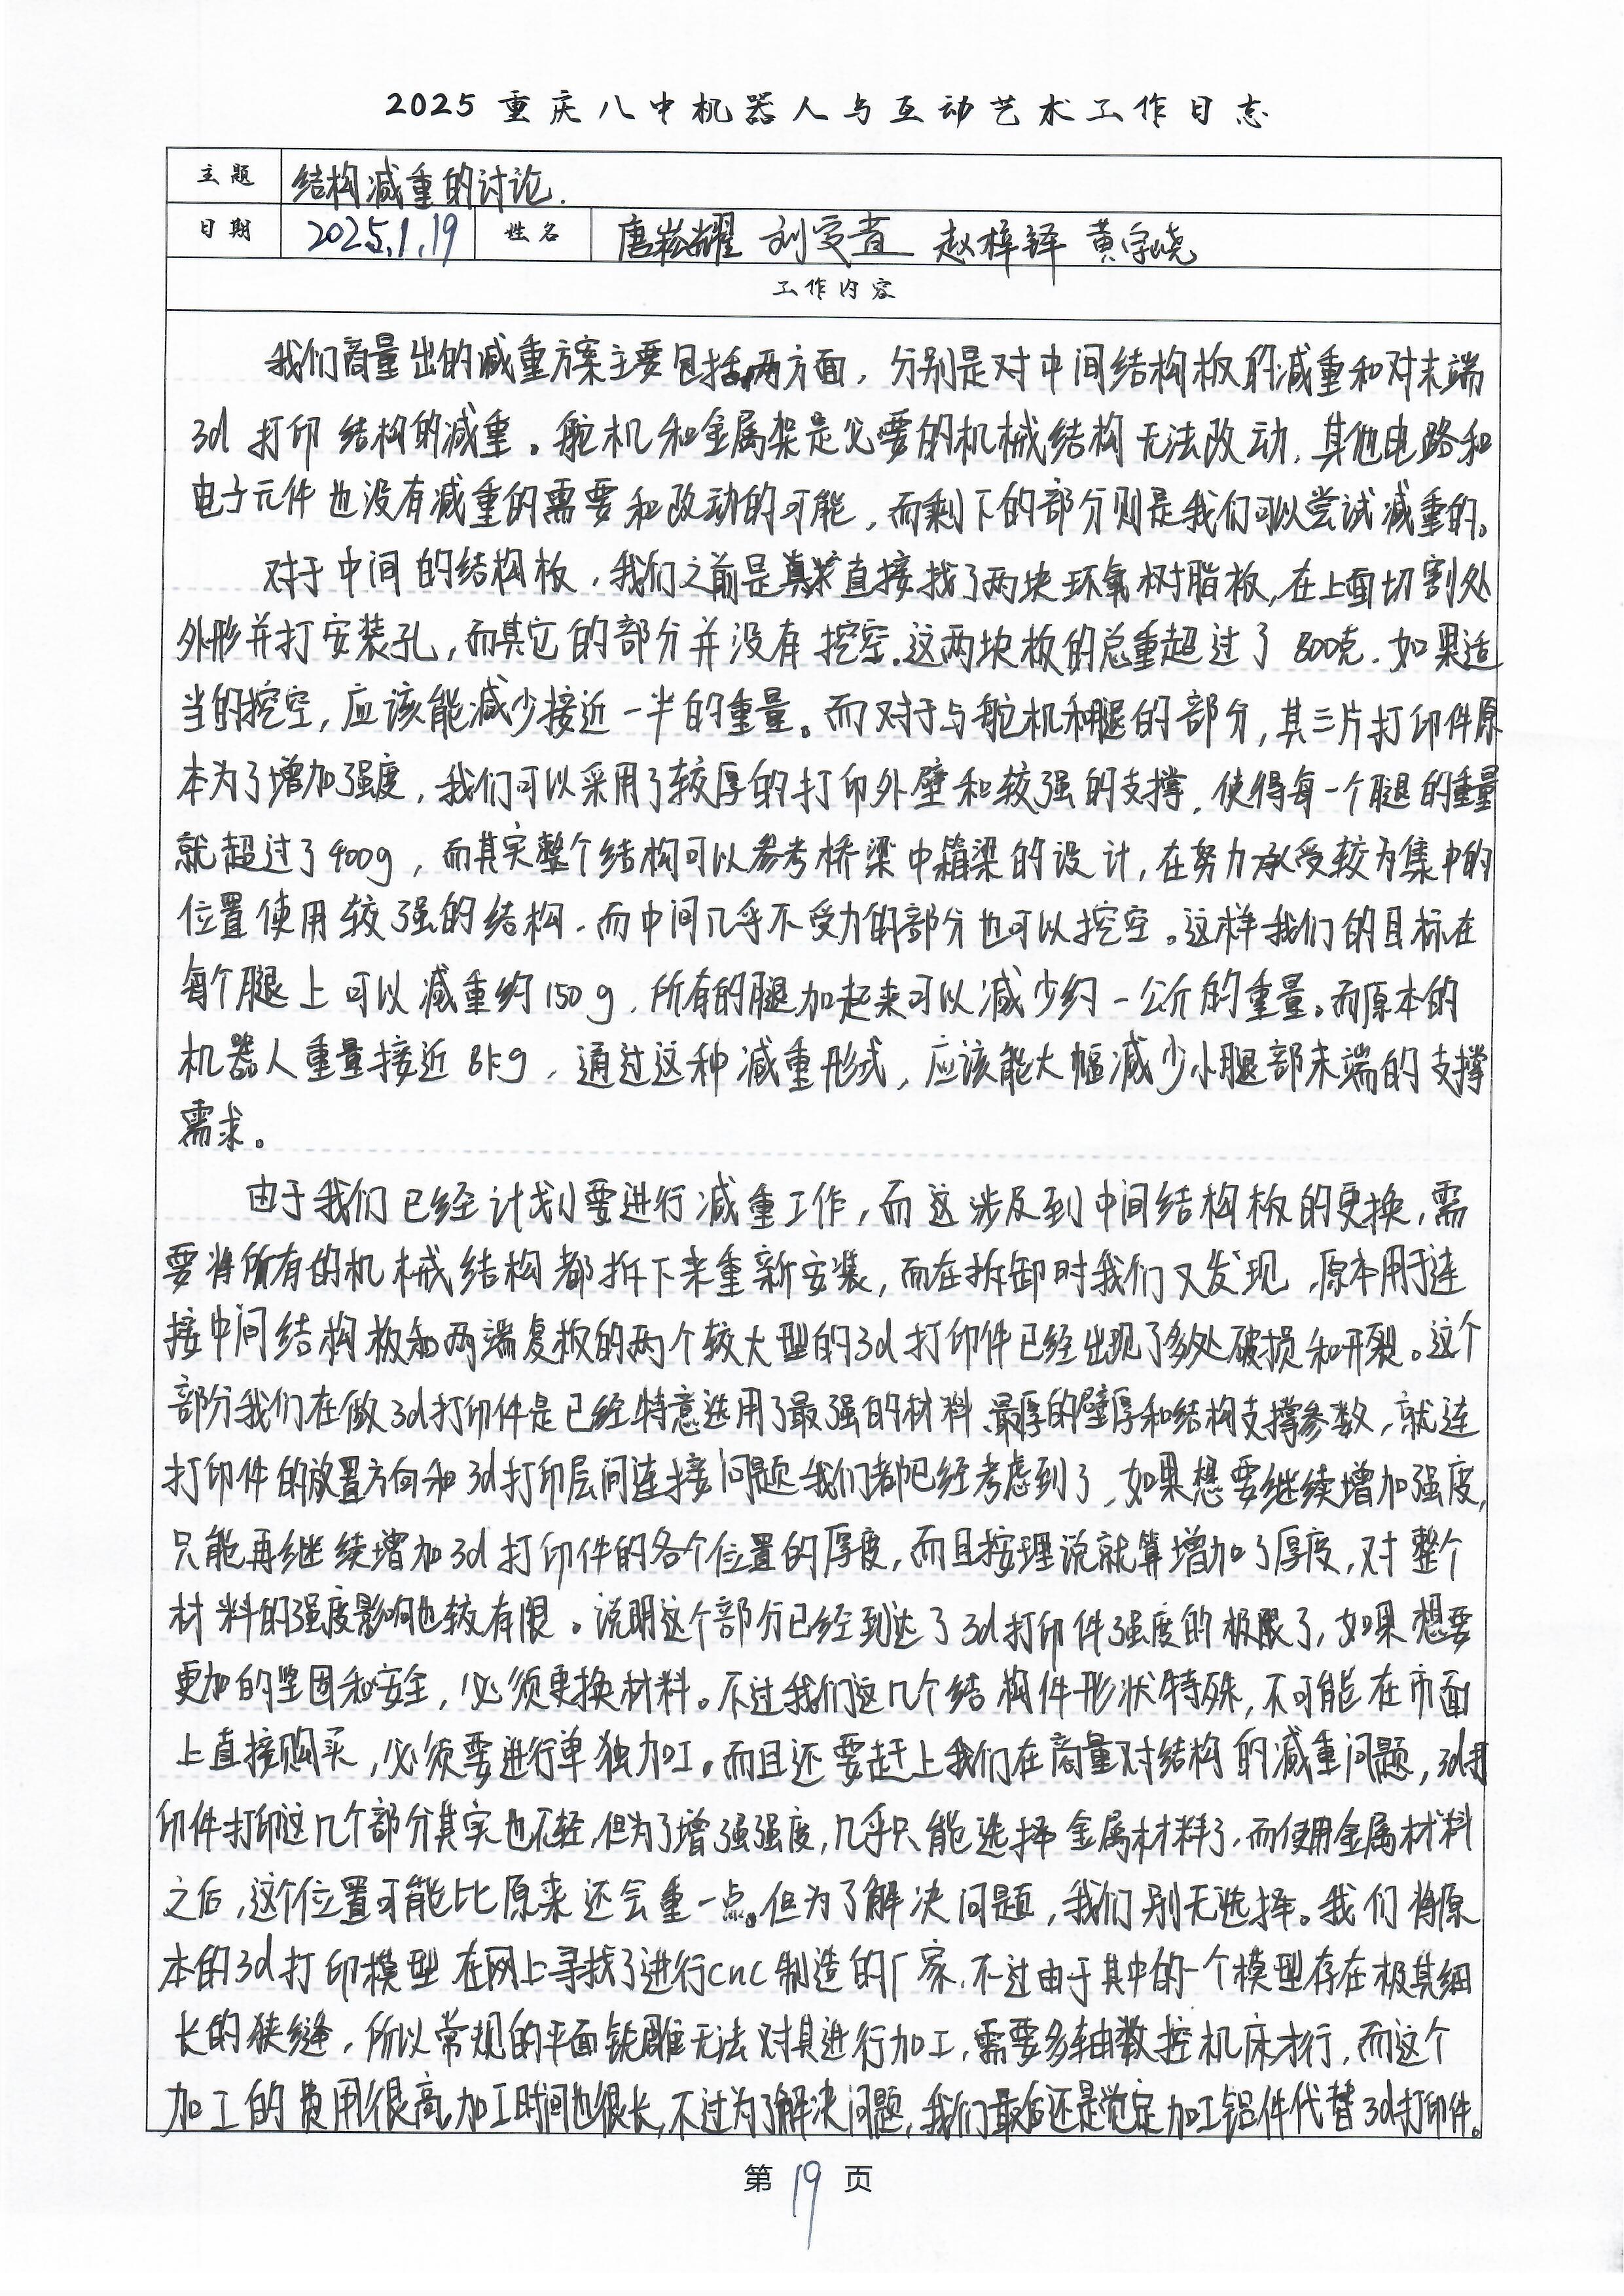 2025重庆八中机器人与互动艺术工作日志
主题 结构减重的讨论.
日期 2025.1.19 姓名 唐崧耀 刘安 赵梓铎 黄宇晓
工作内容
我们商量出的减重方案主要包括两方面，分别是对中间结构板的减重和对末端
3d打印结构的减重。舵机和金属架是必要的机械结构无法改动，其他电路和
电子元件也没有减重的需要和改动的可能，而剩下的部分则是我们可以尝试减重的。
对于中间的结构板，我们之前是直接找了两块环氧树脂板，在上面切割处
外形并打安装孔，而其它的部分并没有挖空。这两块板的总重超过了800克. 如果适
当的挖空，应该能减少接近一半的重量。而对于与舵机和腿的部分，其三片打印件原
本为了增加强度，我们可以采用了较厚的打印外壁和较强的支撑，使得每一个腿的重量
就超过了400g，而其实整个结构可以参考桥梁中箱梁的设计，在努力承受较为集中的
位置使用较强的结构，而中间几乎不受力的部分也可以挖空。这样我们的目标在
每个腿上可以减重约150g，所有的腿加起来可以减少约一公斤的重量。而原本的
机器人重量接近8kg，通过这种减重形式，应该能大幅减少小腿部末端的支撑
需求。
由于我们已经计划要进行减重工作，而这涉及到中间结构板的更换，需
要将所有的机械结构都拆下来重新安装，而在拆卸时我们又发现，原本用于连
接中间结构板和两端复板的两个较大型的3d打印件已经出现了多处破损和开裂。这个
部分我们在做3d打印件是已经特意选用了最强的材料、最厚的壁厚和结构支撑参数，就连
打印件的放置方向和3d打印层间连接问题我们都已经考虑到了，如果想要继续增加强度，
只能再继续增加3d打印件的各个位置的厚度，而且按理说就算增加了厚度，对整个
材料的强度影响也较有限。说明这个部分已经到达了3d打印件强度的极限了，如果想要
更加的坚固和安全，必须更换材料。不过我们这几个结构件形状特殊，不可能在市面
上直接购买，必须要进行单独加工。而且还要赶上我们在商量对结构的减重问题，3d打
印件打印这几个部分其实也不轻，但为了增强强度，几乎只能选择金属材料了，而使用金属材料
之后，这个位置可能比原来还会重一点。但为了解决问题，我们别无选择。我们将原
本的3d打印模型在网上寻找了进行cnc制造的厂家，不过由于其中的一个模型存在极其细
长的狭缝，所以常规的平面铣雕无法对其进行加工，需要多轴数控机床才行，而这个
加工的费用很高，加工时间也很长，不过为了解决问题，我们最后还是觉定加工铝件代替3d打印件。
第19页